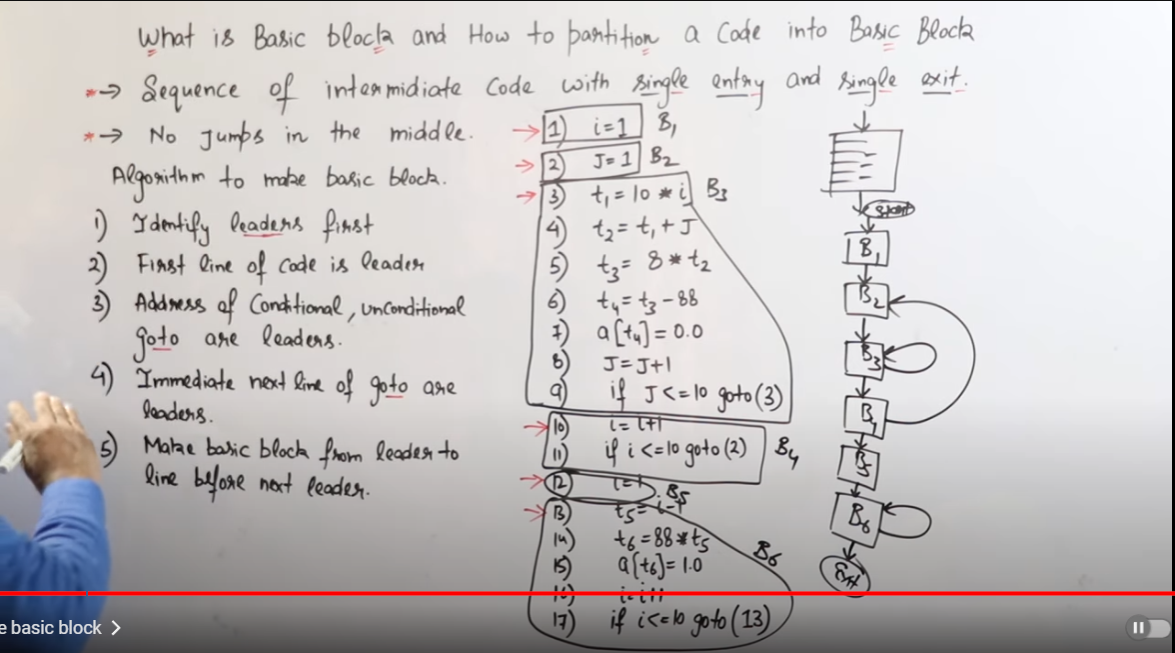 What is Basic block and How to partition a Code into Basic Block
* → Sequence of intermidiate Code with single entry and single exit.
* → No Jumps in the middle.
Algorithm to make basic block.
1) Identify leaders first
2) First line of code is leader
3) Address of Conditional, unconditional
goto are leaders.
4) Immediate next line of goto are
leaders.
5) Make basic block from leader to
line before next leader.
→ 1) i=1 B1
→ 2) J=1 B2
→ 3) t1 = 10 * i B3
4) t2 = t1 + J
5) t3 = 8 * t2
6) t4 = t3 - 88
7) a[t4] = 0.0
8) J = J+1
9) if J <= 10 goto (3)
→ 10) i = i+1
11) if i <= 10 goto (2) B4
→ 12) i=1 B5
→ 13) t5 = i-1
14) t6 = 88 * t5 B6
15) a[t6] = 1.0
16) i = i+1
17) if i <= 10 goto (13)
Start
B1
B2
B3
B4
B5
B6
Exit
e basic block >